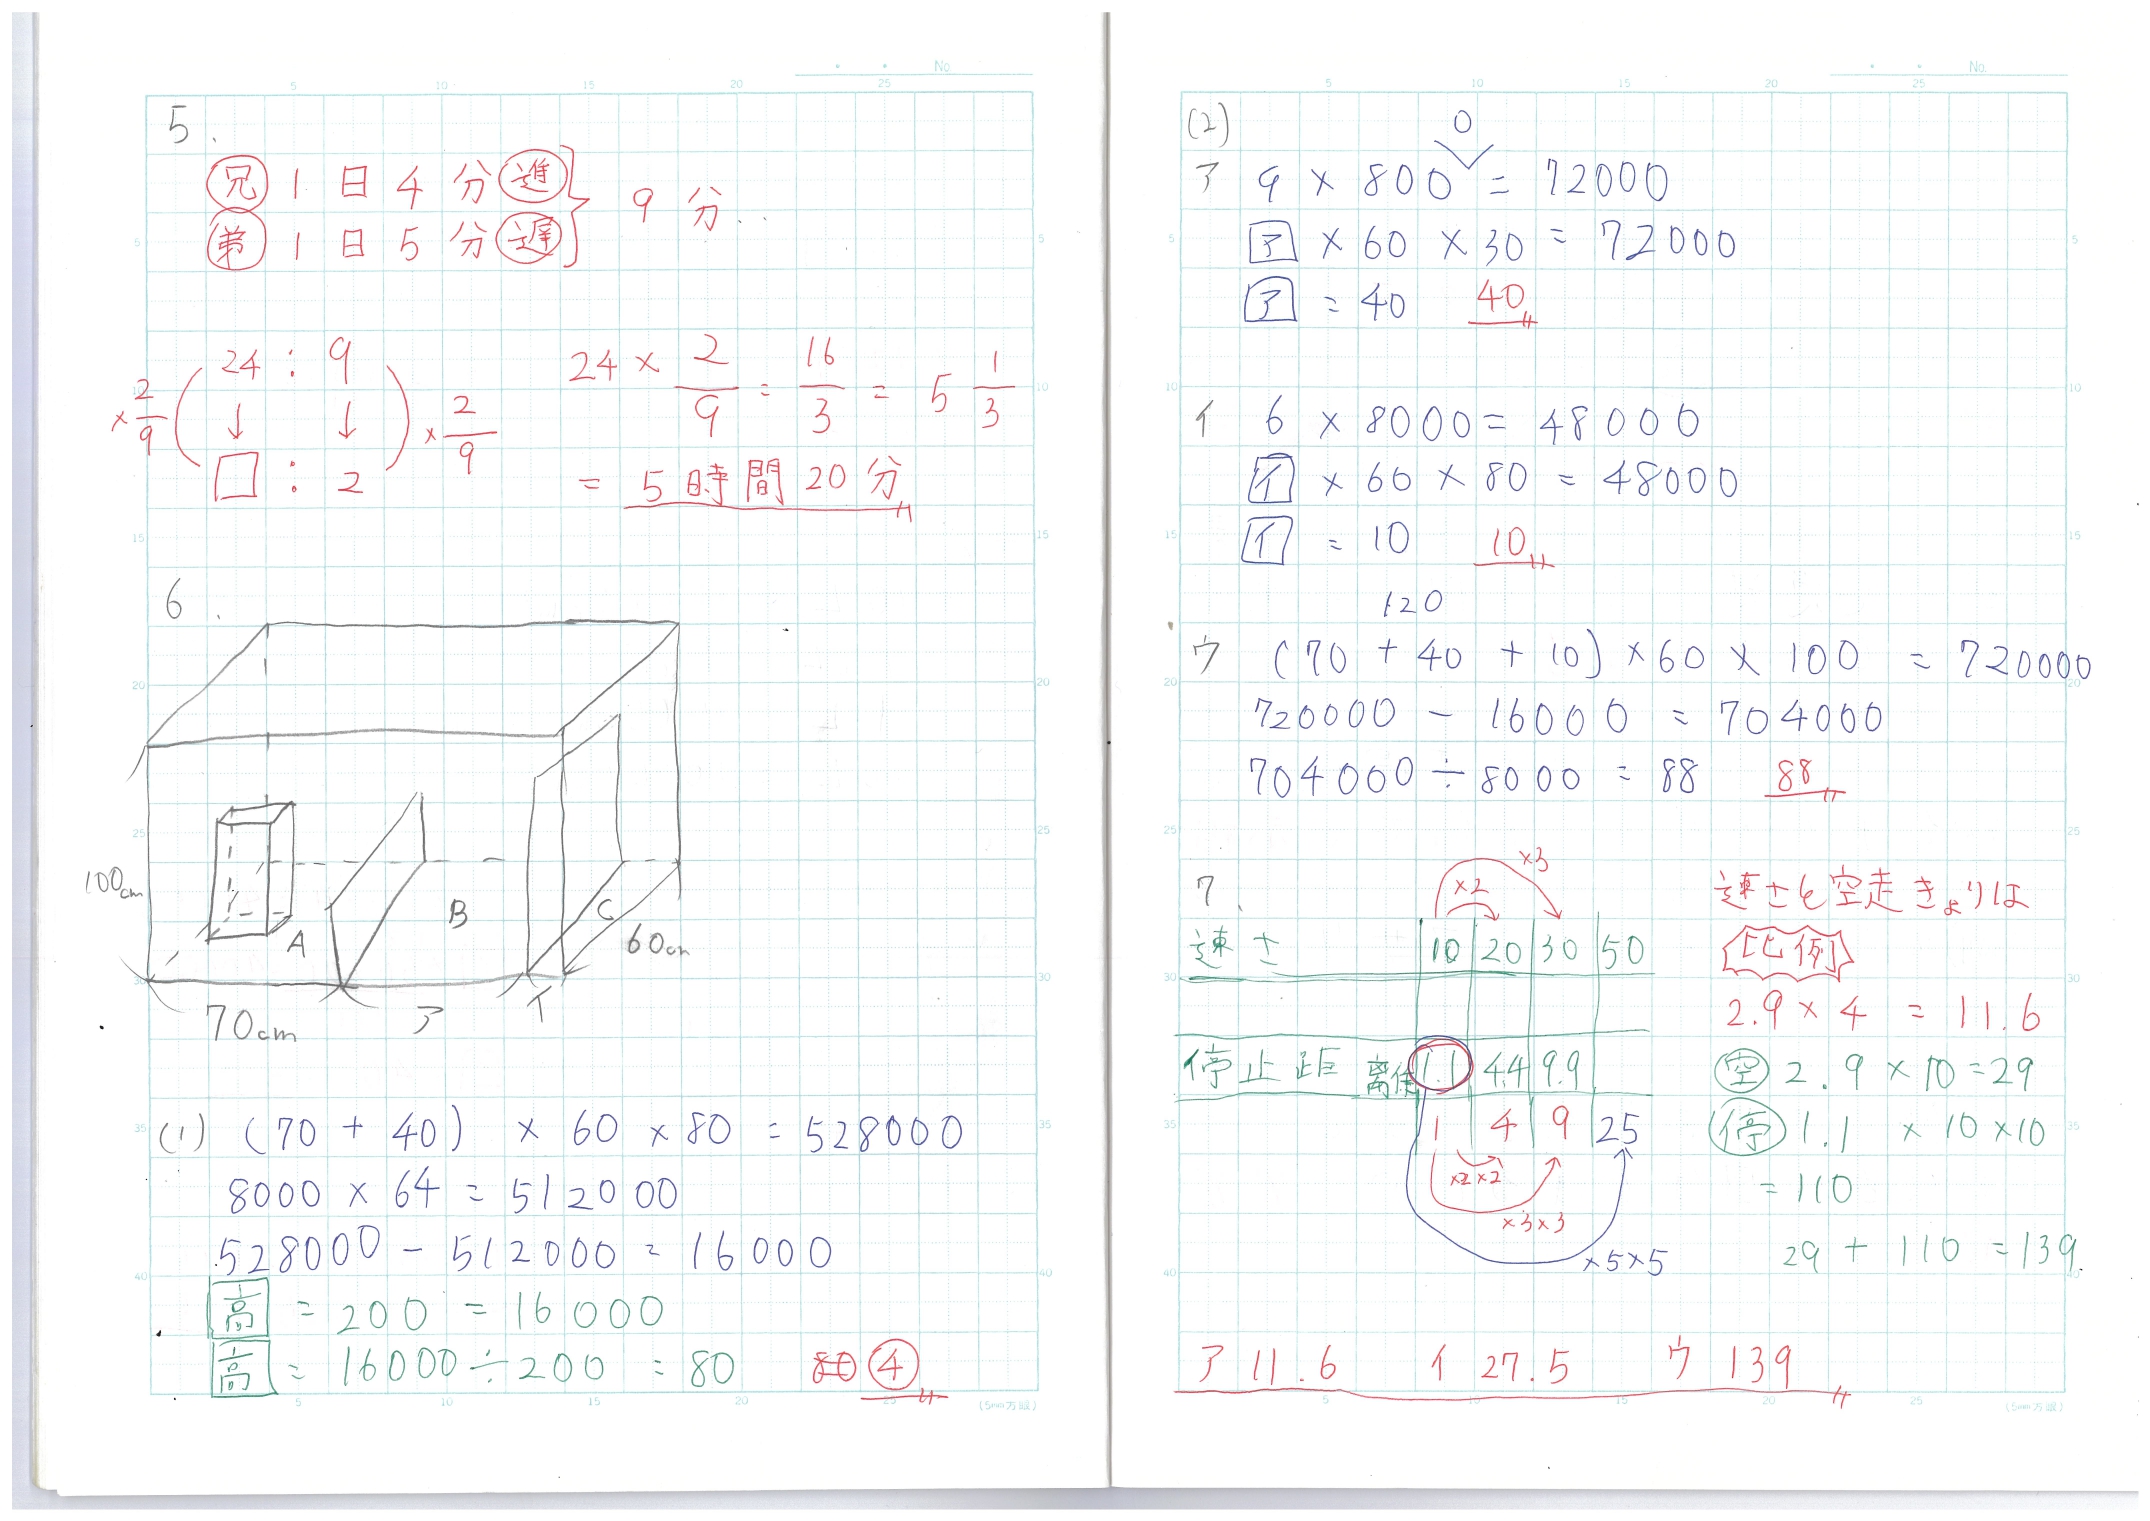 No.
5.
兄 1日4分 進
弟 1日5分 遅
9分
24 : 9
↓ ↓
□ : 2
×2/9
×2/9
24 × 2/9 = 16/3 = 5 1/3
= 5時間20分
6.
100cm
A
B
C
60cm
70cm
ア
イ
(1) (70 + 40) × 60 × 80 = 528000
8000 × 64 = 512000
528000 - 512000 = 16000
高 = 200 = 16000
高 = 16000 ÷ 200 = 80 80 ④
(5mm方眼)
No.
(2)
0
ア 9 × 800 = 72000
ア × 60 × 30 = 72000
ア = 40 40
イ 6 × 8000 = 48000
イ × 60 × 80 = 48000
イ = 10 10
120
ウ (70 + 40 + 10) × 60 × 100 = 720000
720000 - 16000 = 704000
704000 ÷ 8000 = 88 88
7.
×3
×2
速さ 10 20 30 50
停止距離 1.1 4.4 9.9
1 4 9 25
×2×2
×3×3
×5×5
速さと空走きょりは
比例
2.9 × 4 = 11.6
空 2.9 × 10 = 29
停 1.1 × 10 × 10
= 110
29 + 110 = 139
ア 11.6 イ 27.5 ウ 139
(5mm方眼)